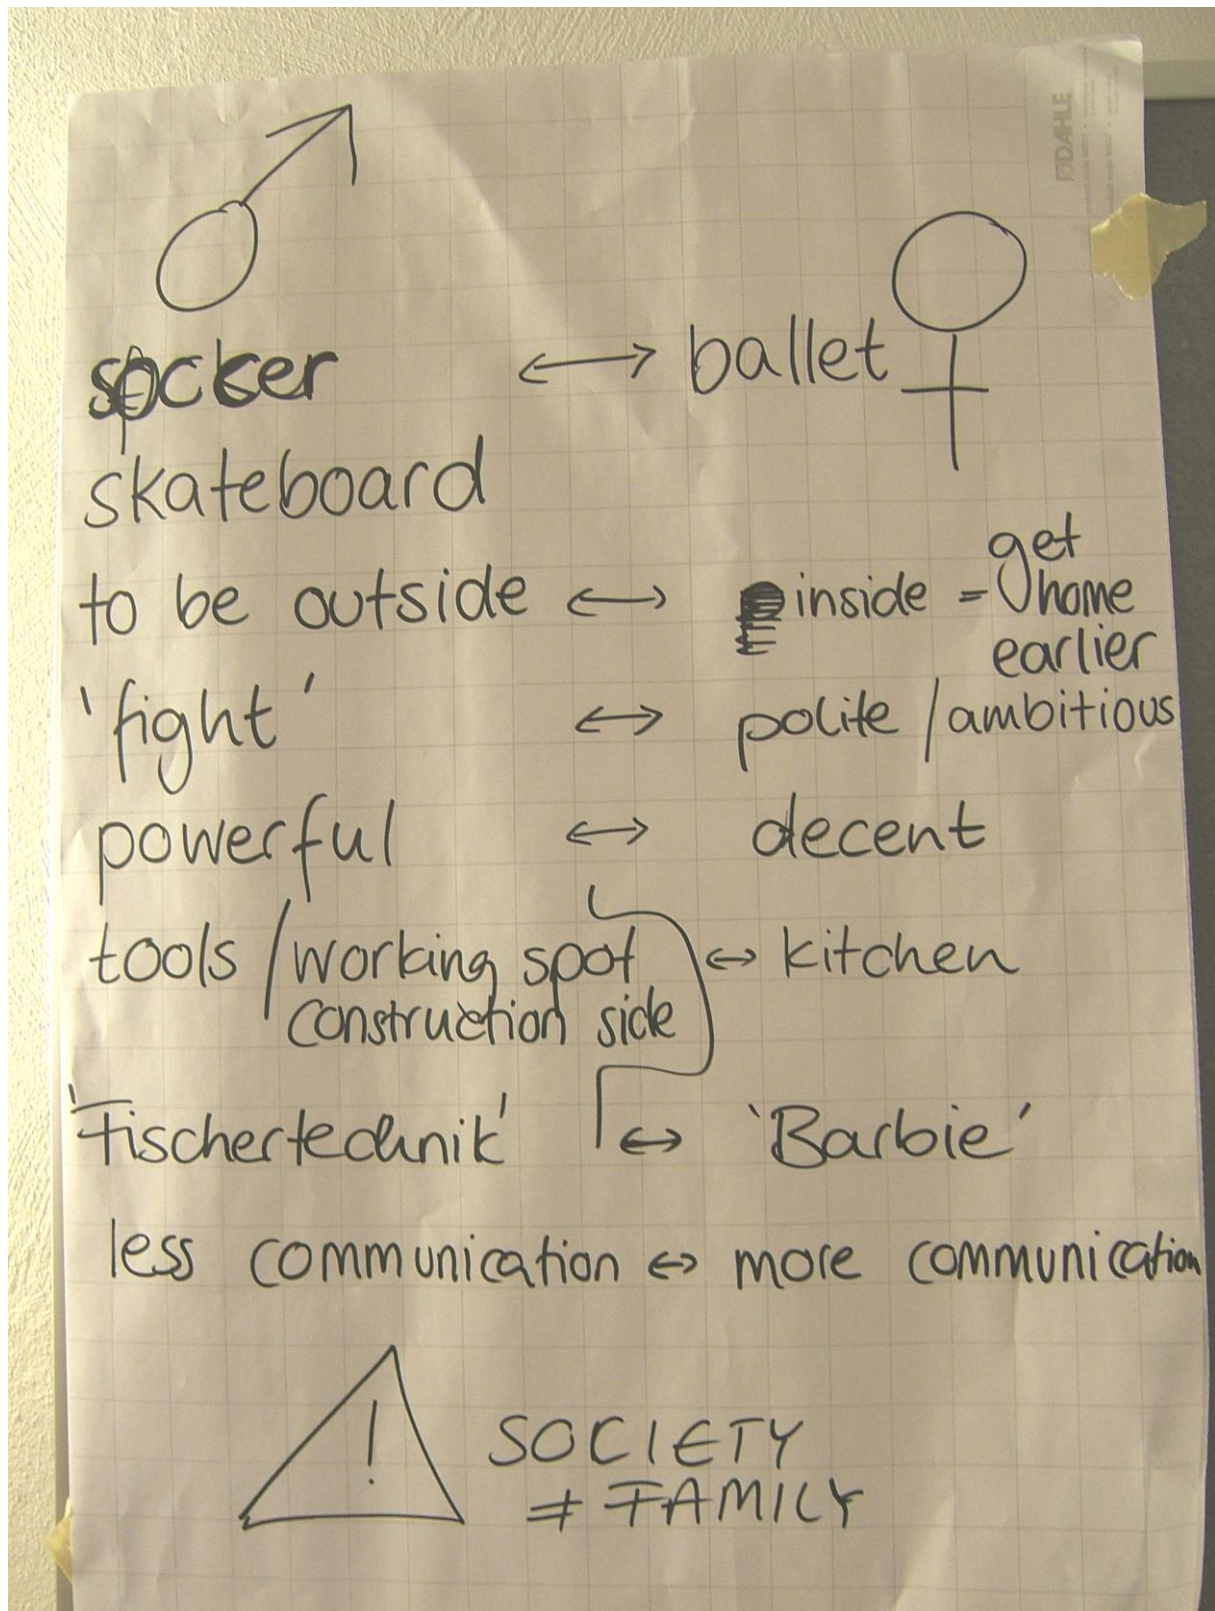 DAHLE
socker ↔ ballet
skateboard
to be outside ↔ inside = get home earlier
'fight' ↔ polite / ambitious
powerful ↔ decent
tools / working spot ↔ kitchen
construction side
'Fischertechnik' ↔ 'Barbie'
less communication ↔ more communication
! SOCIETY
≠ FAMILY